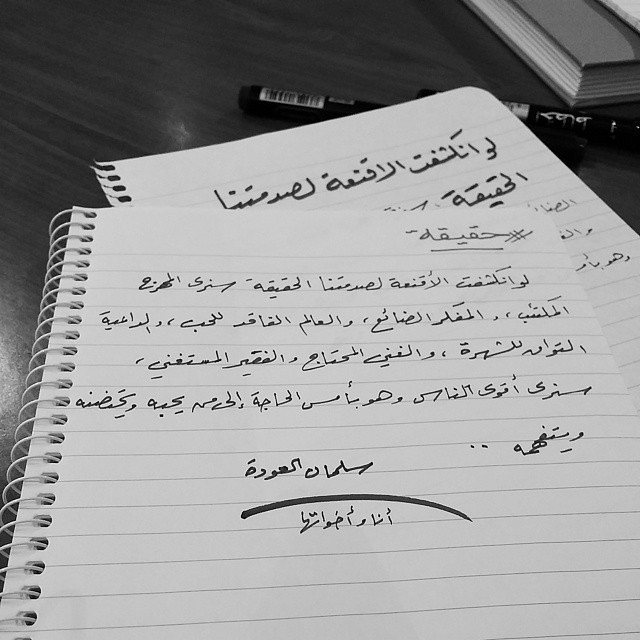 لو انكشفت الاقنعة لصدمتنا
الحقيقة
الضائع
وهو بأمس
خطاط
#حقيقة
لو انكشفت الأقنعة لصدمتنا الحقيقة سنرى المهرج
المكتئب، والمفكر الضائع، والعالم الفاقد للحب، والداعية
التواق للشهرة، والغني المحتاج والفقير المستغني،
سنرى أقوى الناس وهو بأمس الحاجة إلى من يحبه ويحتضنه
ويتفهمه ..
سلمان العودة
أنا وأخواتها